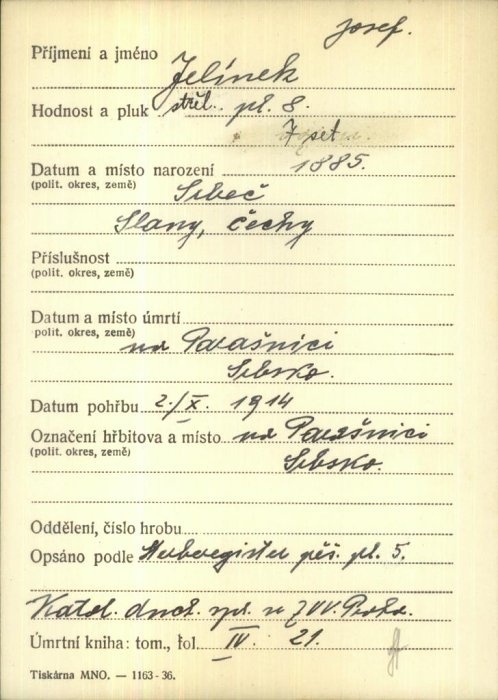 Josef.
Příjmení a jméno Jelínek
Hodnost a pluk střel. pl. 8.
7 set
Datum a místo narození 1885.
(polit. okres, země) Srbeč
Slany, Čechy
Příslušnost
(polit. okres, země)
Datum a místo úmrtí
polit. okres, země)
na Parašnici
Srbsko.
Datum pohřbu 2./X. 1914
Označení hřbitova a místo na Parašnici
(polit. okres, země) Srbsko.
Oddělení, číslo hrobu
Opsáno podle Sterberegister pěš. pl. 5.
Katol. duch. spr. ZVV. Praha.
Úmrtní kniha: tom., fol. IV. 21.
Tiskárna MNO. — 1163 - 36.